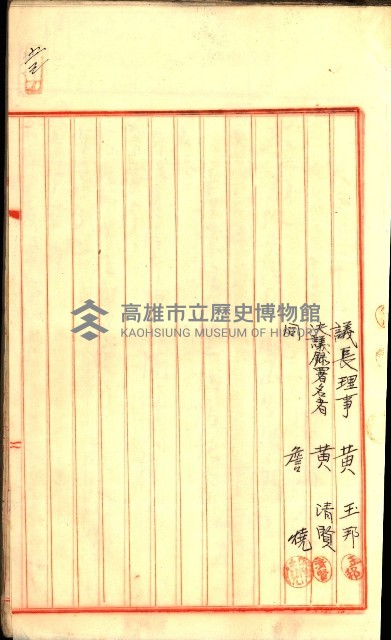 議長理事 黃玉邦
決議錄署名者 黃清賢
同 詹燒
高雄市立歷史博物館
KAOHSIUNG MUSEUM OF HISTORY